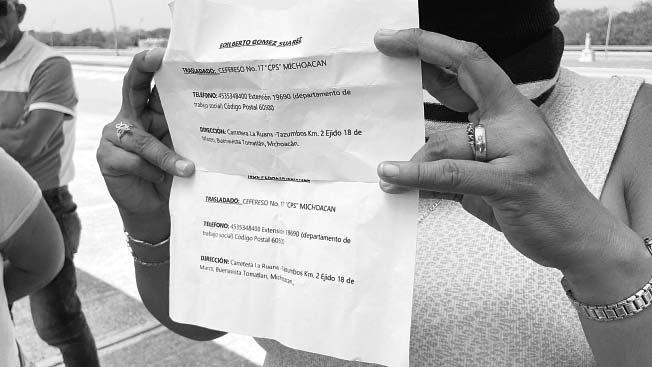 EDILBERTO GOMEZ SUAREZ
TRASLADADO: CEFERESO No. 17 "CPS" MICHOACAN
TELEFONO: 4535348400 Extensión 19690 (departamento de
trabajo social) Código Postal 60980
DIRECCIÓN: Carretera La Ruana -Tazumbos Km. 2 Ejido 18 de
Marzo, Buenavista Tomatlán, Michoacán.
TRASLADADO: CEFERESO No. 17 "CPS" MICHOACAN
TELEFONO: 4535348400 Extensión 19690 (departamento de
trabajo social) Código Postal
DIRECCIÓN: Carretera La Ruana -Tazumbos Km. 2 Ejido 18 de
Marzo, Buenavista Tomatlán, Michoacán.